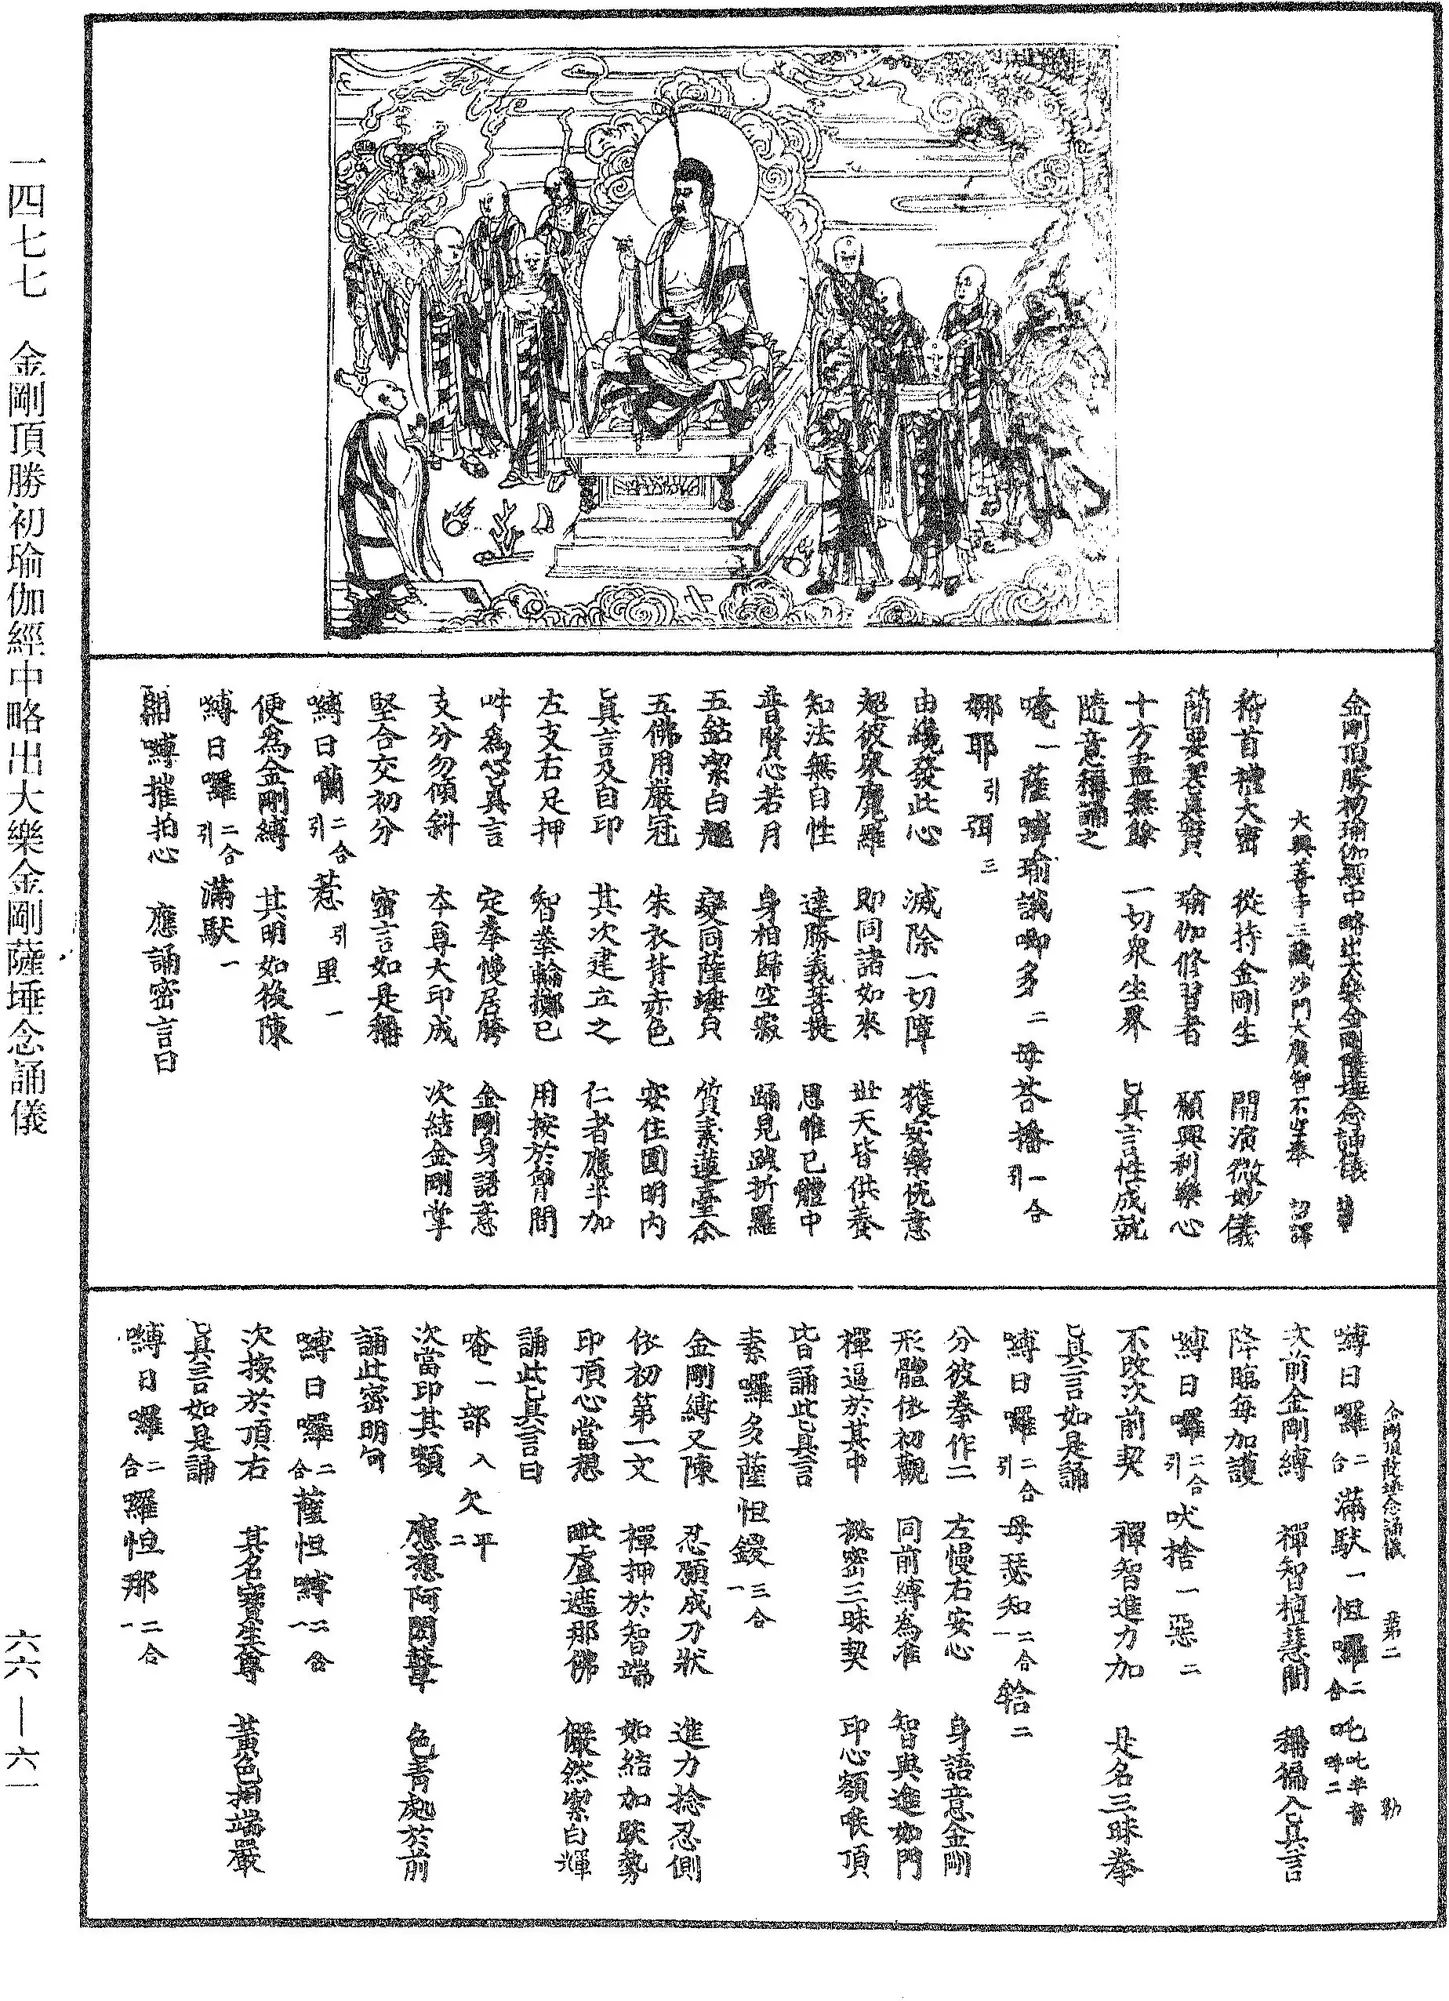 金剛頂勝初瑜伽經中略出大樂金剛薩埵念誦儀
大興善寺三藏沙門大廣智不空奉 詔譯
稽首禮大密 從持金剛生 開演微妙儀
簡要契真實 瑜伽修習者 願興利樂心
十方盡無餘 一切眾生界 真言性成就
隨意稱誦之
唵一薩嚩瑜誐唧多二母荅播二合引
娜耶引弭三
由纔發此心 滅除一切障 獲安樂悅意
超彼眾魔羅 即同諸如來 世天皆供養
知法無自性 達勝義菩提 思惟已體中
普賢心若月 身相歸空寂 踊見跋折羅
五鈷潔白魁 變同薩埵貞 質素蓮臺
五佛用嚴冠 朱衣背赤色 安住圓明內
真言及自印 其次建立之 仁者應半加
左支右足押 智拳輪擲已 用按於胷間
吽為心真言 定拳慢居胯 金剛身語意
支分勿傾斜 本尊大印成 次結金剛掌
堅合交初分 密言如是稱
嚩日囕二合引惹引里一
便為金剛縛 其明如後陳
嚩日囉二合引滿馱一
開縛摧拍心 應誦密言曰
金剛頂薩埵念誦儀 第二 勒
嚩日囉二合滿馱一怛囉二合吒吒半音呼二
次前金剛縛 禪智檀慧間 稱徧入真言
降臨每加護
嚩日囉二合引吠捨一惡二
不改次前契 禪智進力加 是名三昧拳
真言如是誦
嚩日囉二合引母瑟知二合一鞈二
分彼拳作二 左慢右安心 身語意金剛
形體依初觀 同前縛為准 智與進如門
禪逼於其中 祕密三昧契 印心額喉頂
皆誦此真言
素囉多薩怛鑁三合一
金剛縛又陳 忍願成刀狀 進力捻忍側
依初第一文 禪押於智端 如結加趺勢
印頂心當想 毗盧遮那佛 儼然潔白輝
誦此真言曰
唵一部入欠平二
次當印其額 應想阿閦鞞 色青處於前
誦此密明句
嚩日囉二合薩怛嚩二合一
次按於頂右 其名寶生尊 黃色相端嚴
真言如是誦
嚩日囉二合羅怛那二合一
一四七七 金剛頂勝初瑜伽經中略出大樂金剛薩埵念誦儀
六六—六一